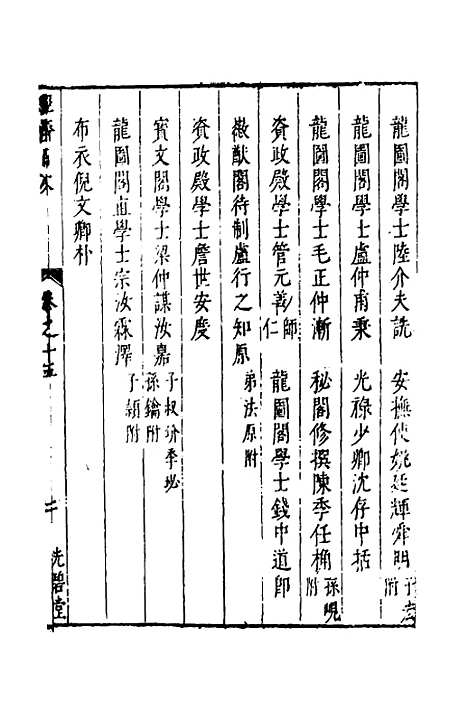 龍圖閣學士陸介夫詵 安撫使姚廷輝舜明子 附
龍圖閣學士盧仲甫秉 光祿少卿沈存中括
龍圖閣學士毛正仲漸 秘閣修撰陳季任桷孫峴附
資政殿學士管元善師仁 龍圖閣學士錢中道即
徽猷閣待制盧行之知原弟法原附
資政殿學士詹世安度
寶文閣學士梁仲謀汝嘉子叔玠季珌孫鑰附
龍圖閣直學士宗汝霖澤子穎附
布衣倪文卿朴
卷之十五
二
洗碧堂